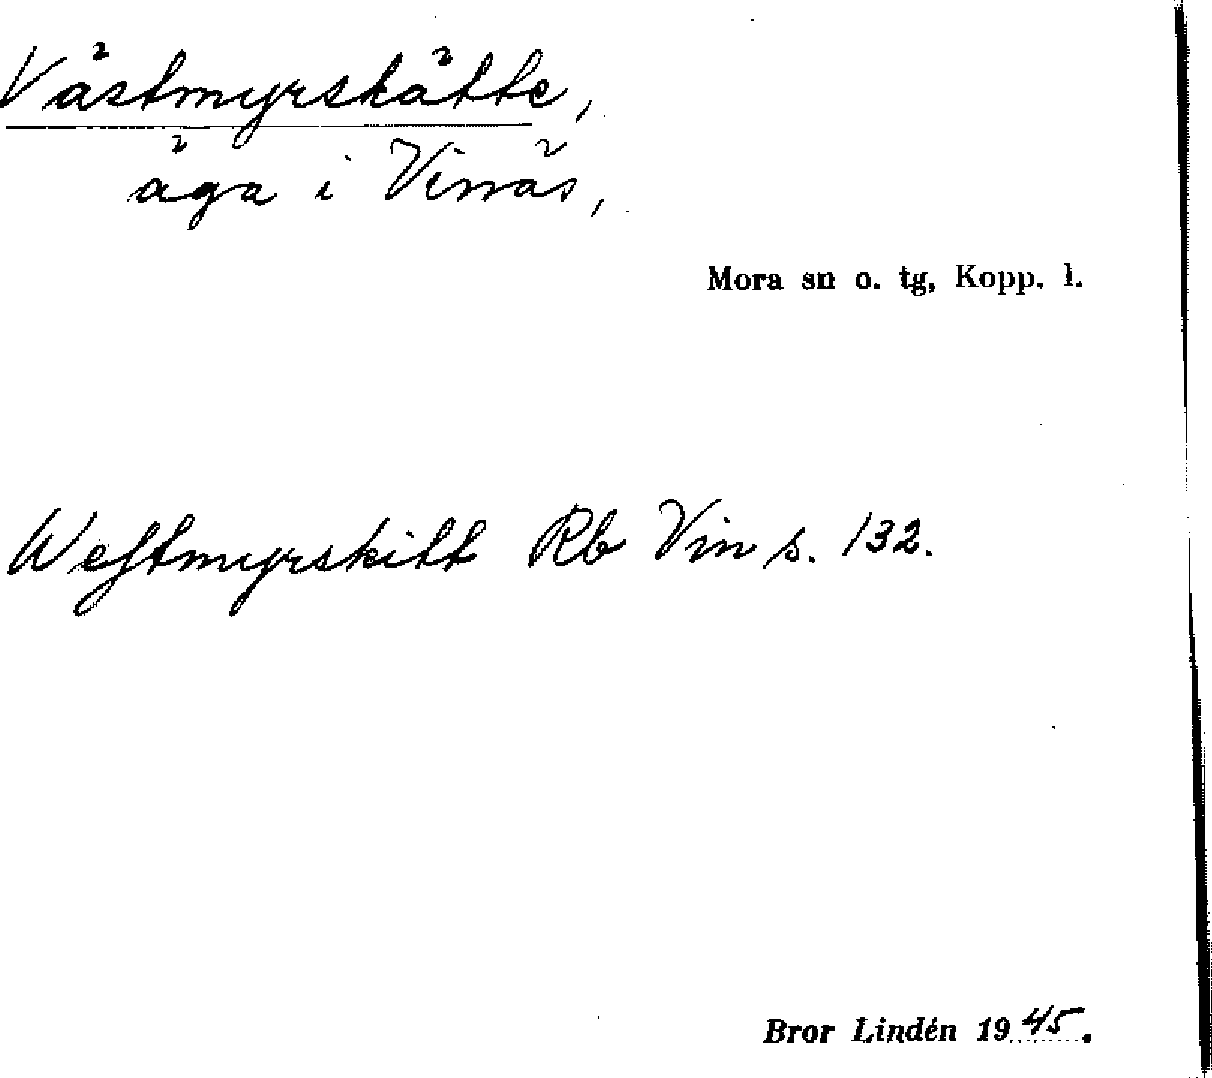 Västmyrskätte,
äga i Vinäs,
Mora sn o. tg, Kopp. l.
Westmyrskitt Rb Vin s. 132.
Bror Lindén 1945.